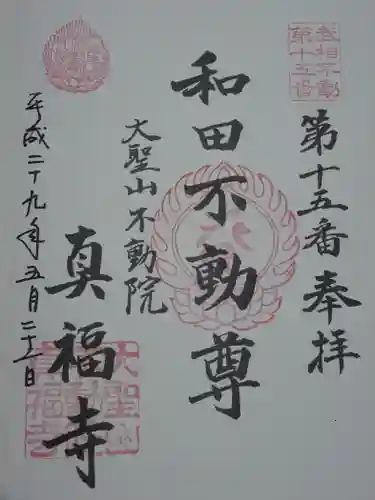 武相不動
第十五番
第十五番奉拝
和田不動尊
大聖山不動院
真福寺
平成二十九年五月二十二日
大聖山
真福寺